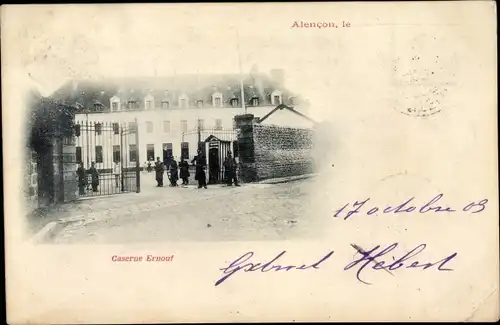 Alençon, le
17 octobre 03
Caserne Ernouf
Gabriel Hébert